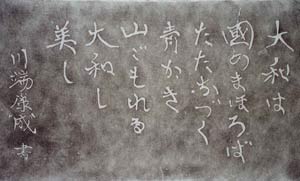 大和は
國のまほろば
たたなづく
青かき
山ごもれる
大和し
美し
川端康成 書